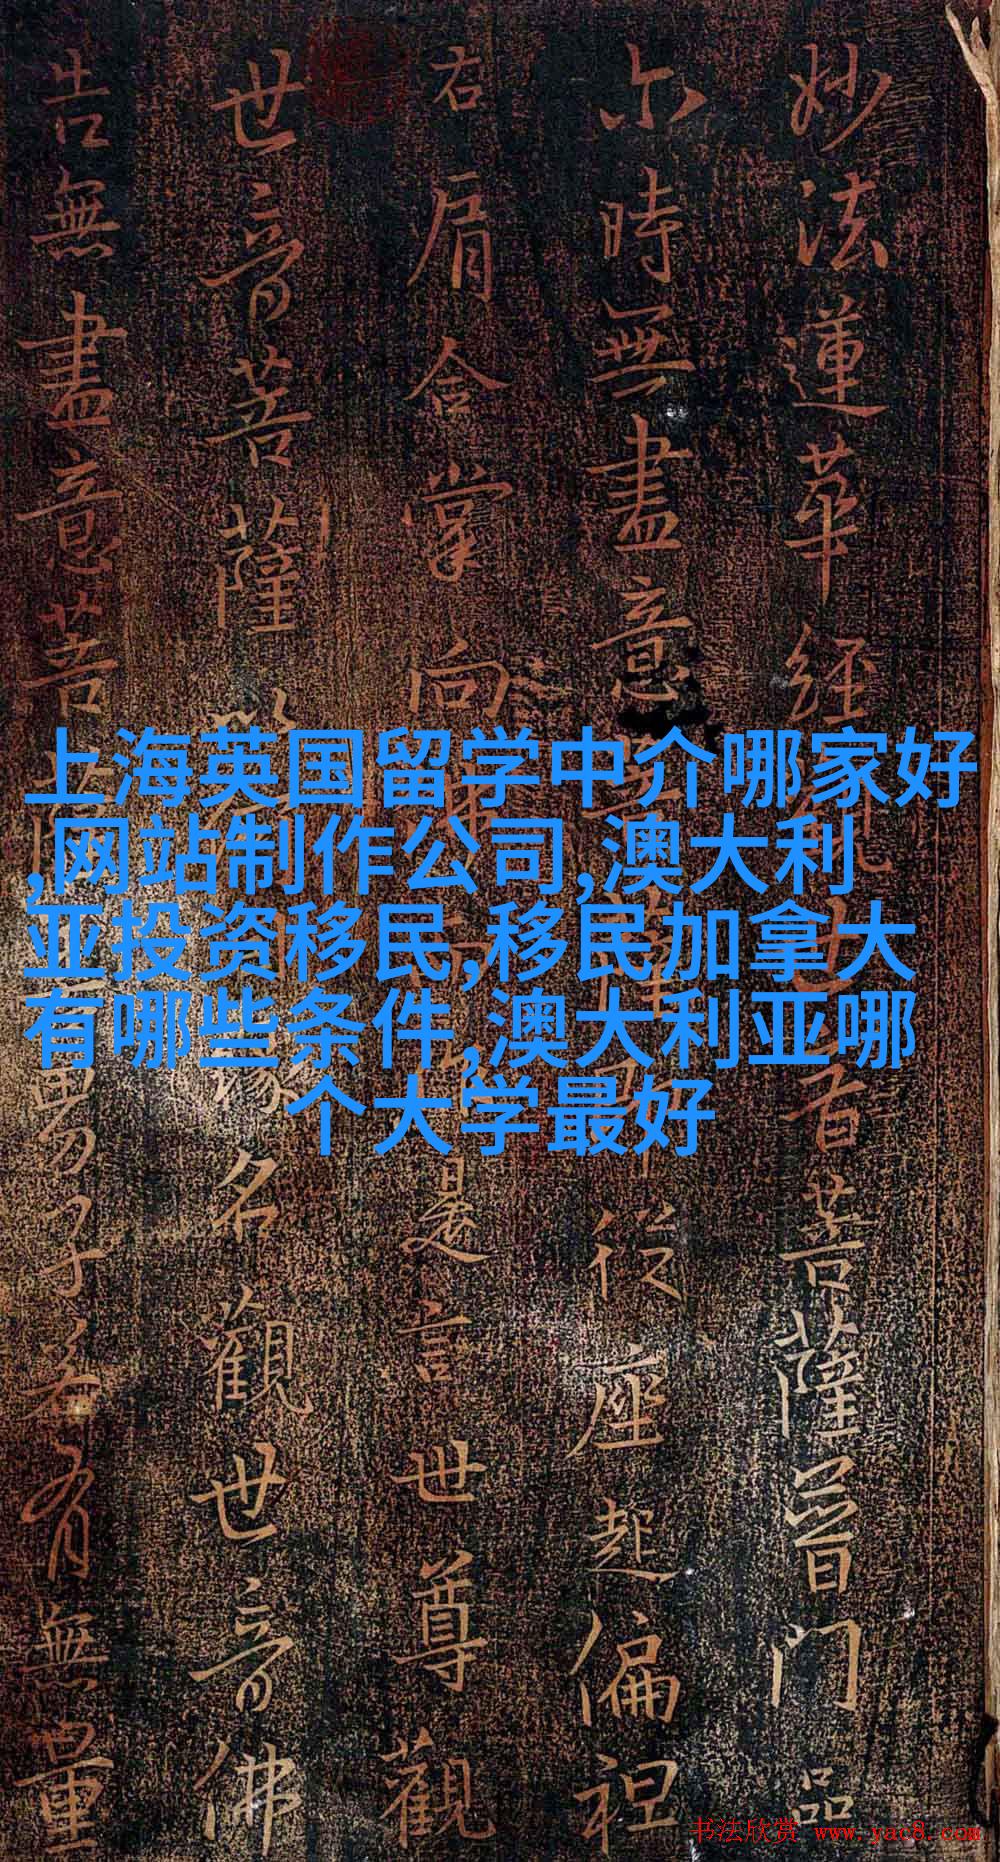 妙法蓮華經世音菩薩普門品
尒時無盡意從座起偏袒
右肩合掌向是言世尊觀
世音菩薩緣名觀世音佛
告無盡意菩男子若有無量
上海英国留学中介哪家好
,网站制作公司,澳大利
亚投资移民,移民加拿大
有哪些条件,澳大利亚哪
个大学最好
书法欣赏 www.yac8.com